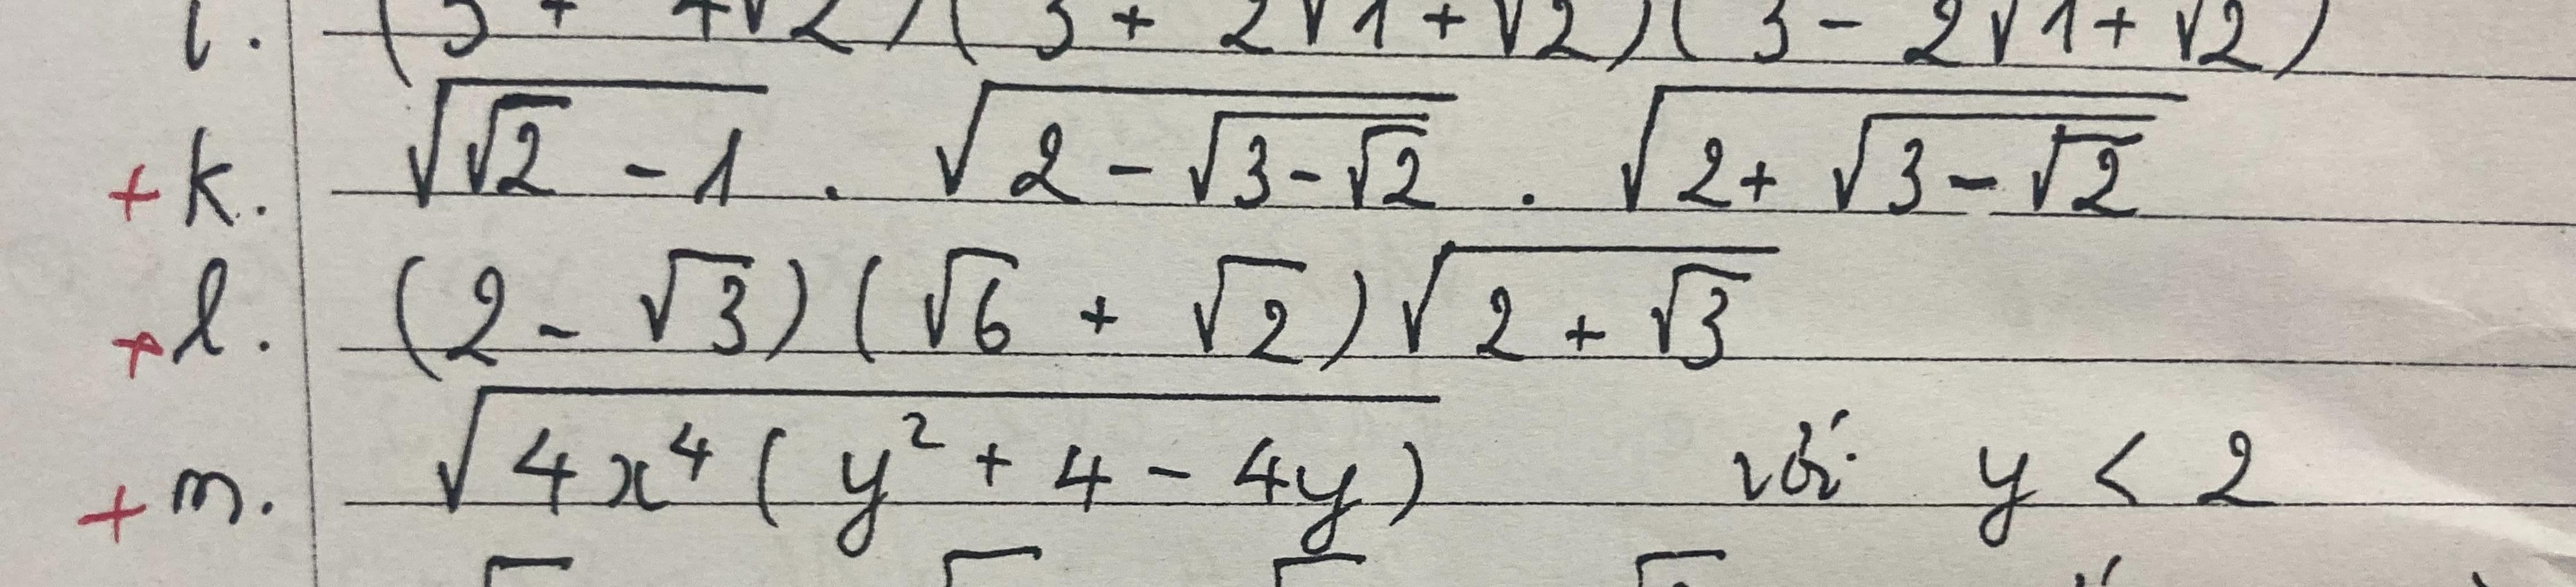 i. (5 + 4√2)(3 + 2√1+√2)(3 - 2√1+√2)
+ k. √(√2 - 1) . √(2 - √(3-√2)) . √(2 + √(3-√2))
+ l. (2 - √3)(√6 + √2)√(2 + √3)
+ m. √(4x⁴(y² + 4 - 4y)) với y < 2